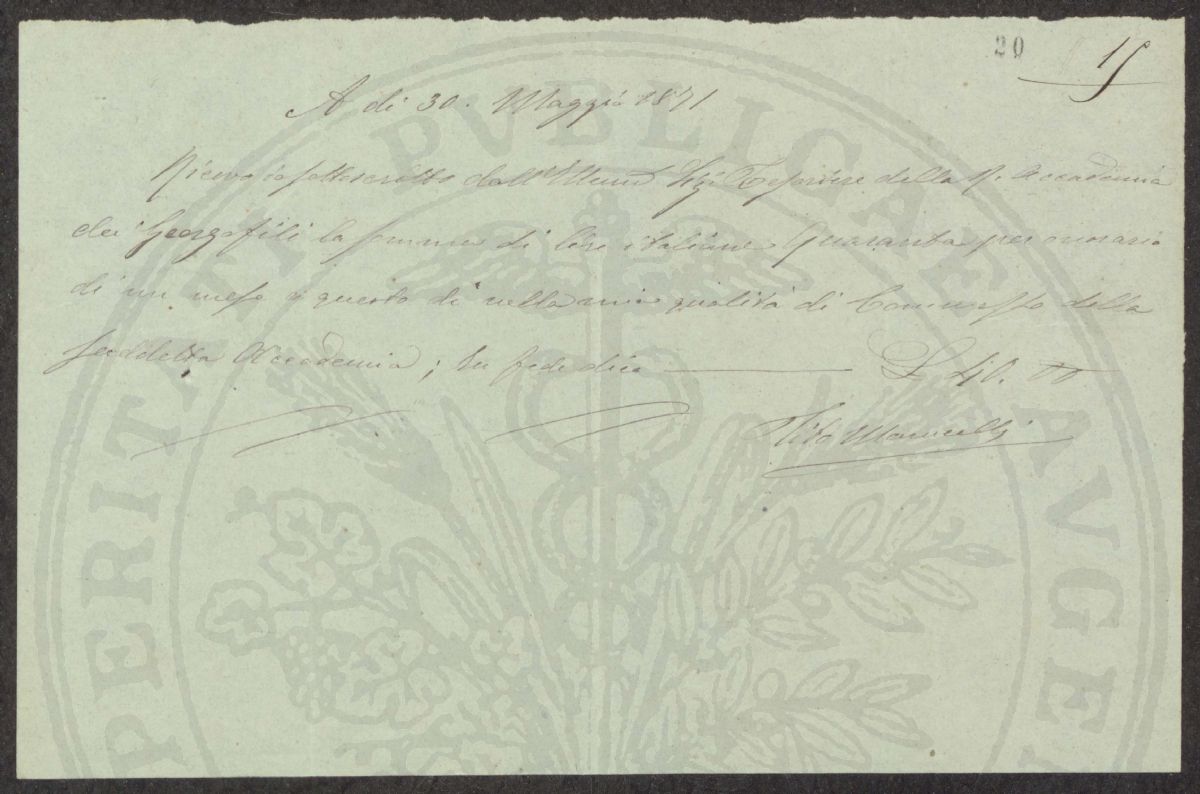 20 15
A di 30. Maggio 1871
Ricevo io sottoscritto dall' Illmo Sig. Tesoriere della R. Accademia
dei Georgofili la somma di lire italiane Quaranta per onorario
di un mese a questo dì nella mia qualità di Commesso della
suddetta Accademia; In fede dico L 40. 00
PROSPERITATI PVBLICAE AVGE